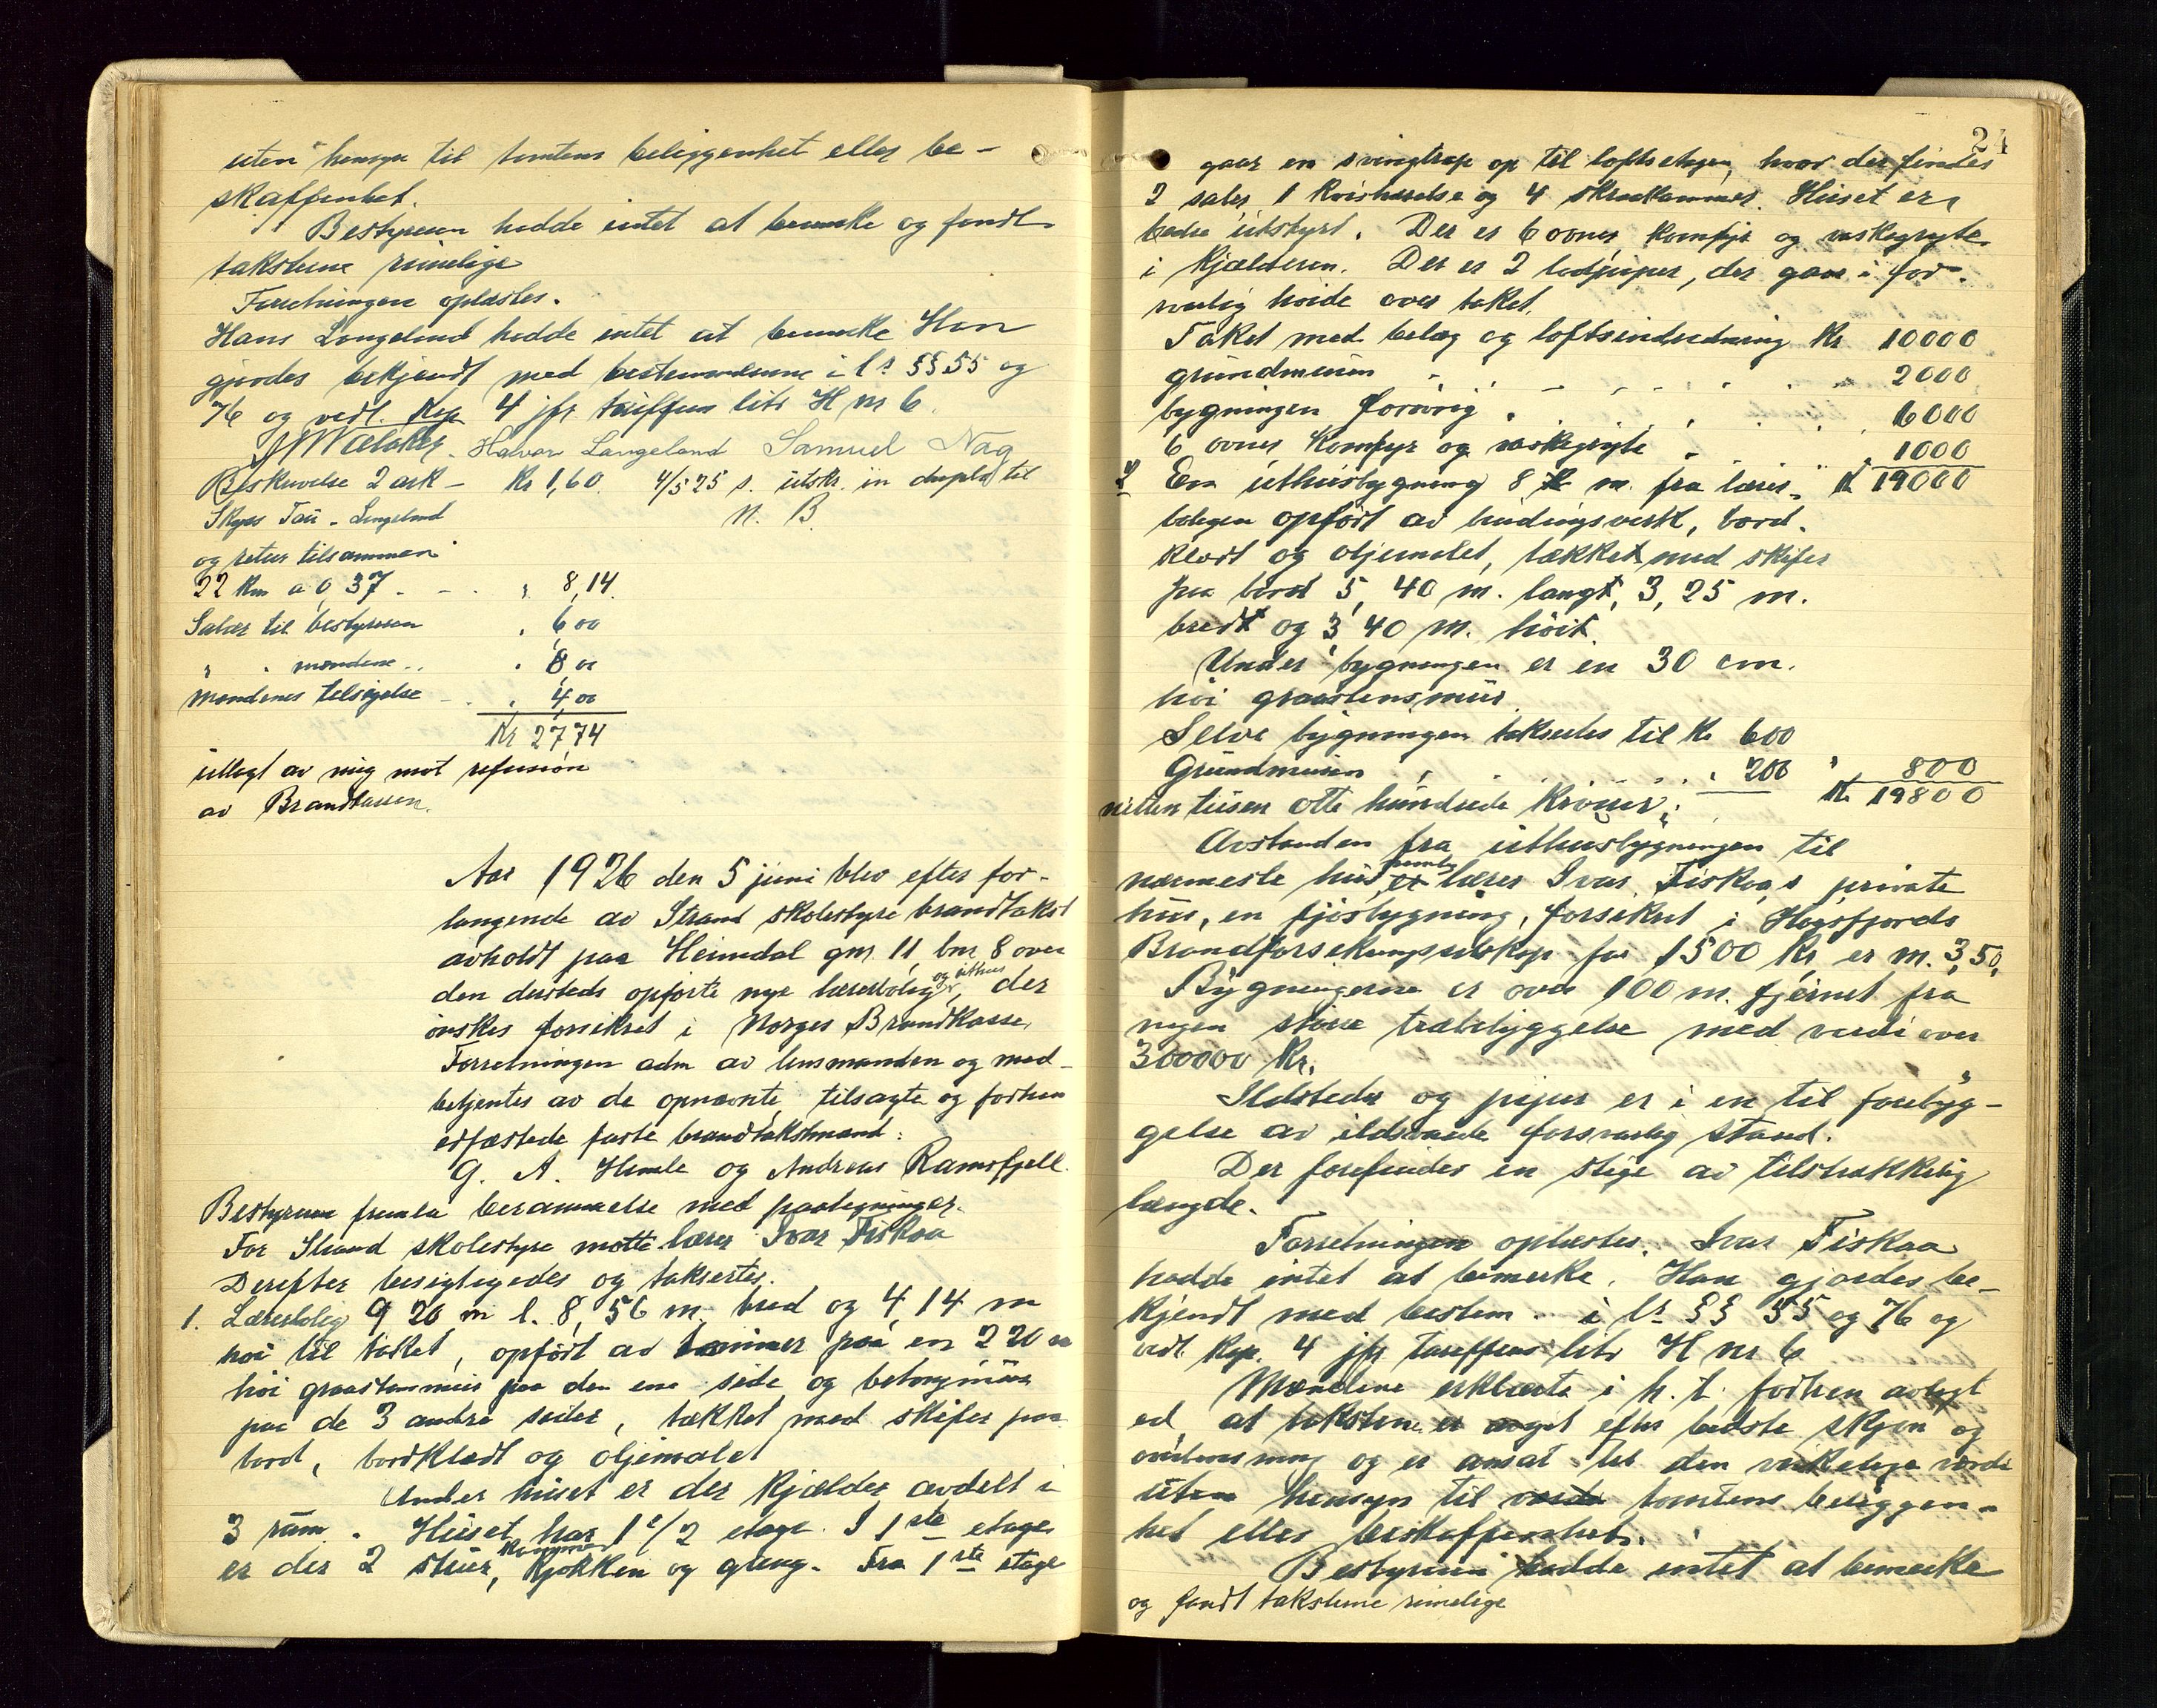 uten hensyn til tomtens beliggenhet eller be-
skaffenhet.
Bestyreren hadde intet at bemerke og fandt
taksterne rimelige
Forretningen oplæstes.
Hans Langeland hadde intet at bemerke Han
gjordes bekjendt med bestemmelserne i l. §§ 55 og
76 og vedt. Kap 4 jfr tariffen litr H nr 6.
Halvor Langeland Samuel Nag
Beskrivelse 2 ark - Kr 1,60. 4/5 25 s. utskr. in duplo til
N. B.
Skyss Tau - Langeland
og retur tilsammen
22 km a 0,37 - - " 8,14.
Salær til bestyreren " 6,00
" " mændene .. " 8,00
Mændenes tilsigelse - . " 4,00
Kr 27,74
utlagt av mig mot refusion
av Brandkassen.
Aar 1926 den 5 juni blev efter for-
langende av Strand skolestyre brandtakst
avholdt paa Heimdal gnr 11 bnr 8 over
den dersteds opførte nye lærerbolig og uthus, der
ønskes forsikret i Norges Brandkasse.
Forretningen adm av lensmanden og med-
betjentes av de opnævnte, tilsagte og forhen
edfæstede faste brandtakstmænd:
G. A. Himle og Andreas Ramsfjell.
Bestyreren fremla berammelse med paategninger.
For Strand skolestyre møtte lærer Ivar Fiskaa
Derefter besigtigedes og takseertes.
1. Lærerbolig 9 20 m l. 8,56 m. bred og 4,14 m
høi til taket, opført av tømmer paa en 2 20 m
høi graastensmur paa den ene side og betongmur
paa de 3 andre sider, tækket med skifer paa
bord, bordklædt og oljemalet
Under huset er der kjælder avdelt i
3 rum. Huset har 1 1/2 etage. I 1ste etage
er der 2 stuer, kammer, kjøkken og gang. Fra 1ste etage
24
gaar en svingtrap op til loftsetagen, hvor der findes
2 saler 1 kvistværelse og 4 skraakammer. Huset er
bedre utstyrt. Der er 6 ovner komfyr og vaskegryte
i kjælderen. Der er 2 lodpiper, der gaar i for-
svarlig høide over taket.
Taket med belæg og loftsindredning Kr 10000
grundmuren - - - - - 2000
bygningen forøvrig " . . . 6000
6 ovner komfyr og vaskegryte " " 1000
2 En uthusbygning 8 m. fra lærer- Kr 19000
boligen opført av bindingsverk, bord-
klædt og oljemalet, tækket med skifer
paa bord 5,40 m. langt, 3,25 m.
bredt og 3,40 m. høit.
Under bygningen er en 30 cm.
høi graastensmur
Selve bygningen takseres til Kr 600
Grundmuren . . . . " 200 " 800
nitten tusen otte hundrede kroner: Kr 19800
Avstanden fra uthusbygningen til
nærmeste hus nemlig lærer Ivar Fiskaa's private
hus, en fjøsbygning, forsikret i Høgsfjords
Brandforsikringsselskap for 1500 kr, er m. 3,50.
Bygningerne er over 100 m. fjernet fra
nogen større træbebyggelse med værdi over
300000 Kr.
Ildsteder og piper er i en til forebyg-
gelse av ildsvaade forsvarlig stand.
Der forefindes en stige av tilstrækkelig
længde.
Forretningen oplæstes. Ivar Fiskaa
hadde intet at bemerke. Han gjordes be-
kjendt med bestem .. i l. §§ 55 og 76 og
vedt. Kap. 4 jfr tariffens litr H nr 6
Mændene erklærte i h. t. forhen avlagt
ed, at taksten er avgit efter bedste skjøn og
overbevisning og er ansat til den virkelige værdi
uten hensyn til tomtens beliggen-
het eller beskaffenhet.
Bestyreren hadde intet at bemerke
og fandt taksterne rimelige